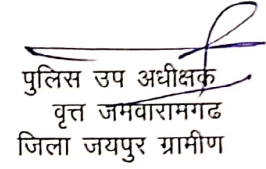 पुलिस उप अधीक्षक
वृत्त जमवारामगढ
जिला जयपुर ग्रामीण